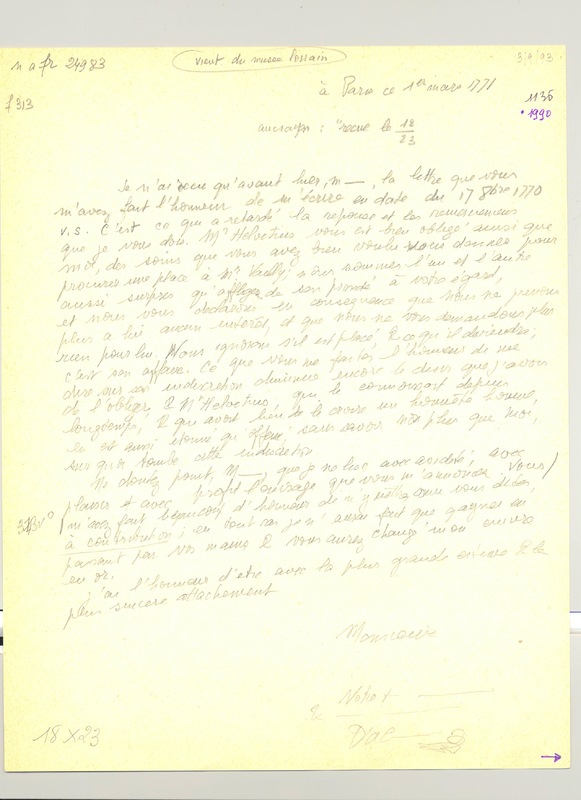 n a fr 24983
vient du musée lorrain
3/9/93
f 313
à Paris ce 1er mars 1771
1135
1990
au crayon : "recue le 18/23
Je n'ai reçu qu'avant hier, m —, la lettre que vous
m'avez fait l'honneur de m'écrire en date du 17 8bre 1770
v.s. C'est ce qui a retardé la reponse et les remerciemens
que je vous dois. Mr Helvetius vous est bien obligé ainsi que
moi, des soins que vous avez bien voulu vous donner pour
procurer une place à Mr ; nous sommes l'un et l'autre
aussi surpris qu'affligés de son procédé à votre égard,
et nous vous declarons en consequence que nous ne prenons
plus a lui aucun interêt, et que nous ne vous demandons plus
rien pour lui. Nous ignorons s'il est placé, & ce qu'il deviendra;
c'est son affaire. Ce que vous me faites l'honneur de me
dire sur son indiscretion diminue encore le desir que j'avois
de l'obliger, & Mr Helvetius, qui le connoissoit depuis
longtemps, & qui avoit lieu de le croire un honnête homme,
en est aussi etonné qu'offensé, sans savoir non plus que moi,
sur quoi tombe cette indiscretion.
Ne doutez point, M —, que je ne lise avec avidité, avec
plaisir et avec profit l'ouvrage que vous m'annoncez. Vous/
313v° /m'avez fait beaucoup d'honneur de m'y mettre comme vous dites,
à contribution; en tout cas je n'aurai fait que gagner en
passant par vos mains & vous aurez changé mon cuivre
en or.
j'ai l'honneur d'etre avec la plus grande estime & le
plus sincere attachement
Monsieur
Votre t —
& —
D'Al—
18 X 23